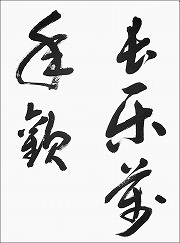 長樂萬
年歡